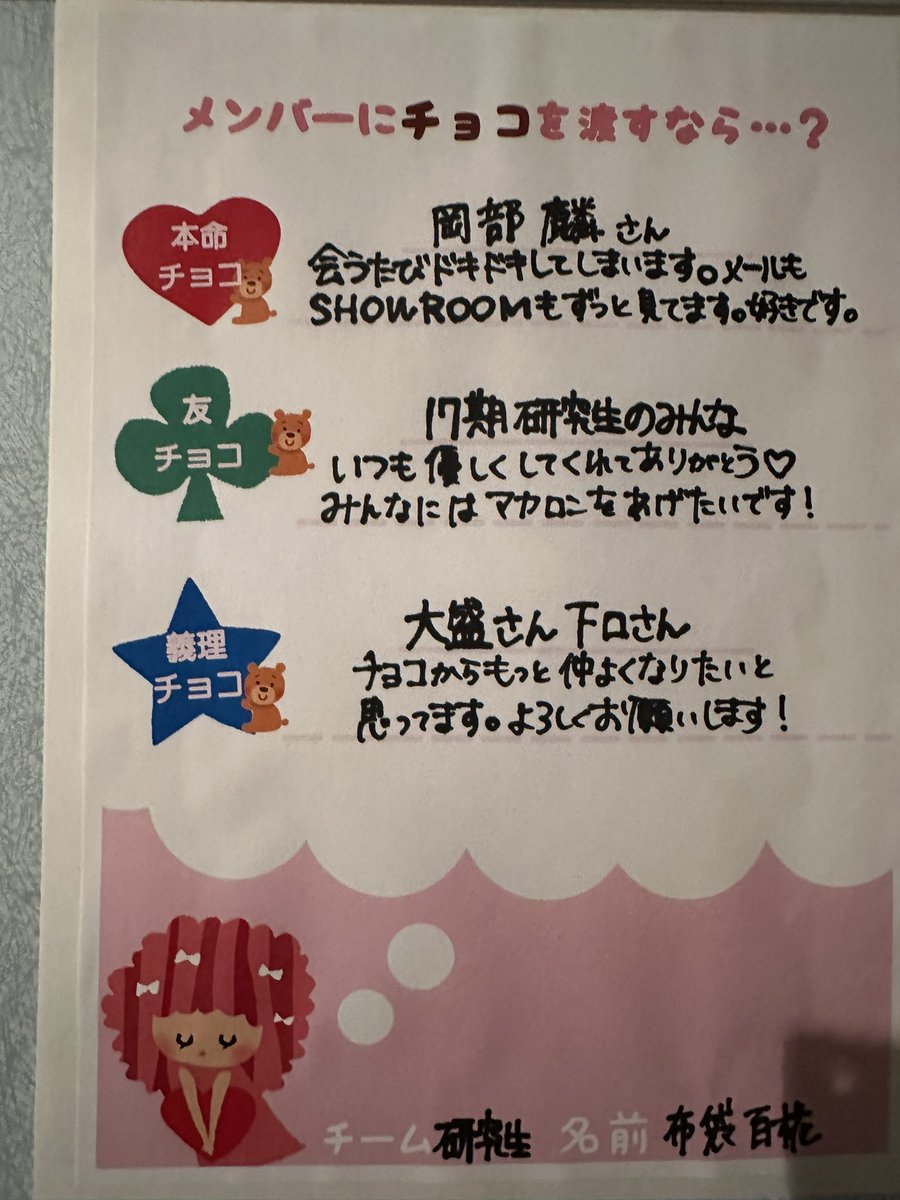 メンバーにチョコを渡すなら…?
本命
チョコ
岡部 麟さん
会うたびドキドキしてしまいます。メールも
SHOWROOMもずっと見てます。好きです。
友
チョコ
17期研究生のみんな
いつも優しくしてくれてありがとう♡
みんなにはマカロンをあげたいです！
義理
チョコ
大盛さん 下口さん
チョコからもっと仲よくなりたいと
思ってます。よろしくお願いします！
チーム 研究生 名前 布袋百椛